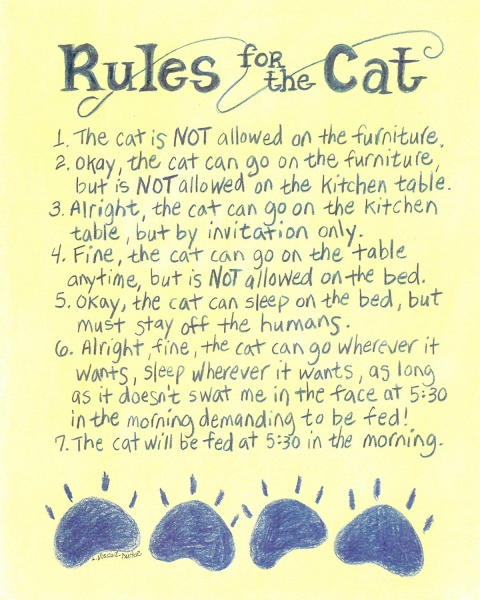 Rules for the Cat
1. The cat is NOT allowed on the furniture.
2. Okay, the cat can go on the furniture,
but is NOT allowed on the kitchen table.
3. Alright, the cat can go on the kitchen
table, but by invitation only.
4. Fine, the cat can go on the table
anytime, but is NOT allowed on the bed.
5. Okay, the cat can sleep on the bed, but
must stay off the humans.
6. Alright, fine, the cat can go wherever it
wants, sleep wherever it wants, as long
as it doesn't swat me in the face at 5:30
in the morning demanding to be fed!
7. The cat will be fed at 5:30 in the morning.